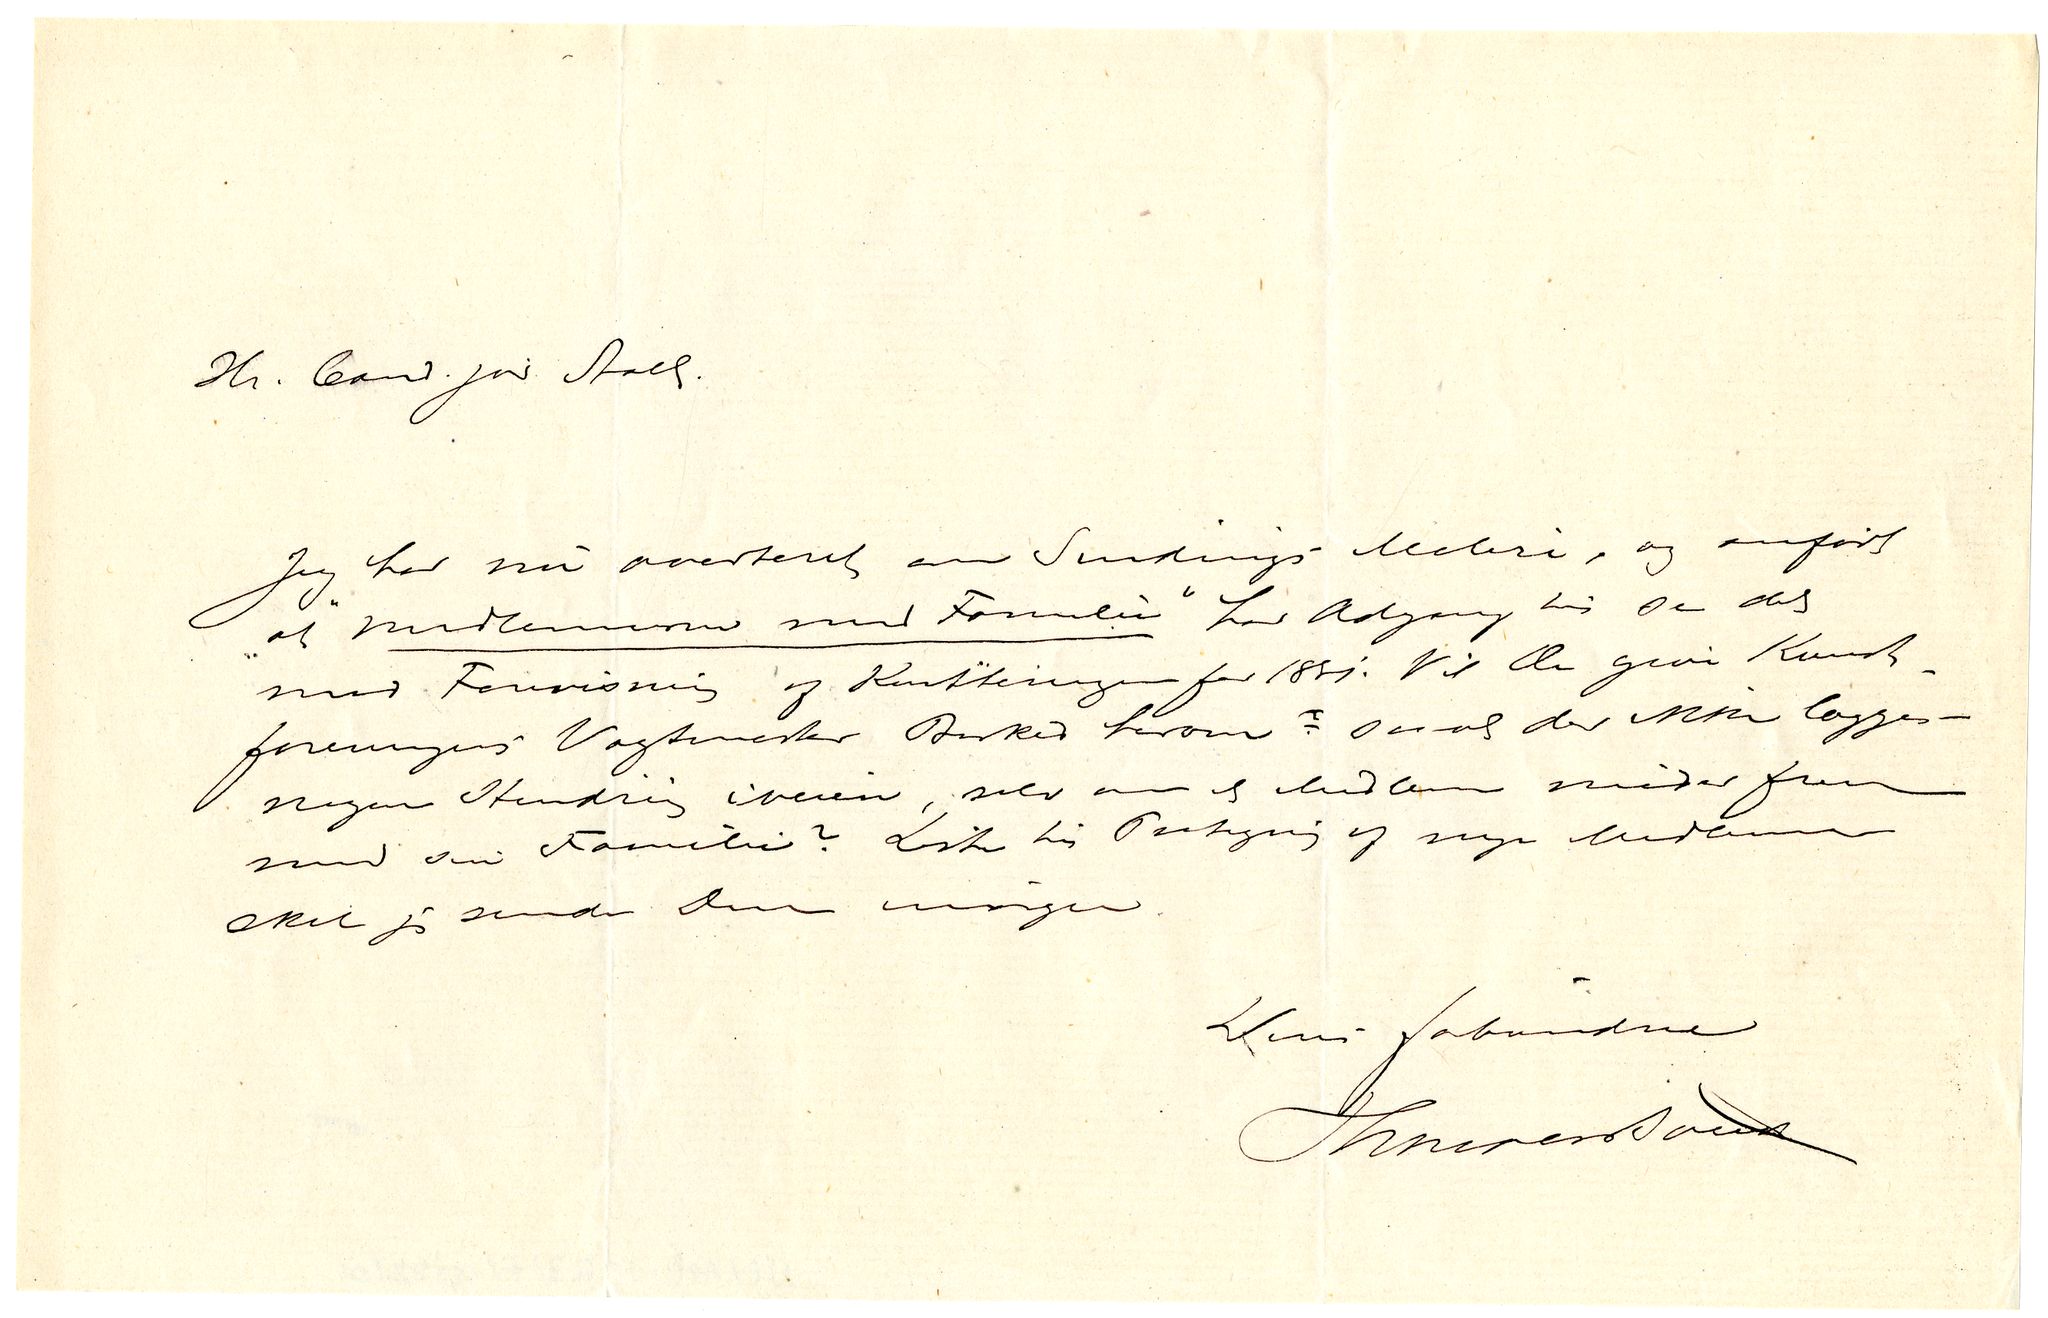 Hr. Cand. jur. Stoltz.
Jeg har nu averteret om Sindings Maleri, og anført
at "Medlemmerne med Familie" har Adgang til at se det
mod Forevisning af Kvitteringen for 1881. Vil De give Kunst-
foreningens Vagtmester Besked herom? saa at der ikke lægges
nogen Hindring iveien, selv om et Medlem møder frem
med sin Familie? Liste til Tegning af nye Medlemmer
skal jeg sende Dem imorgen.
Deres forbundne